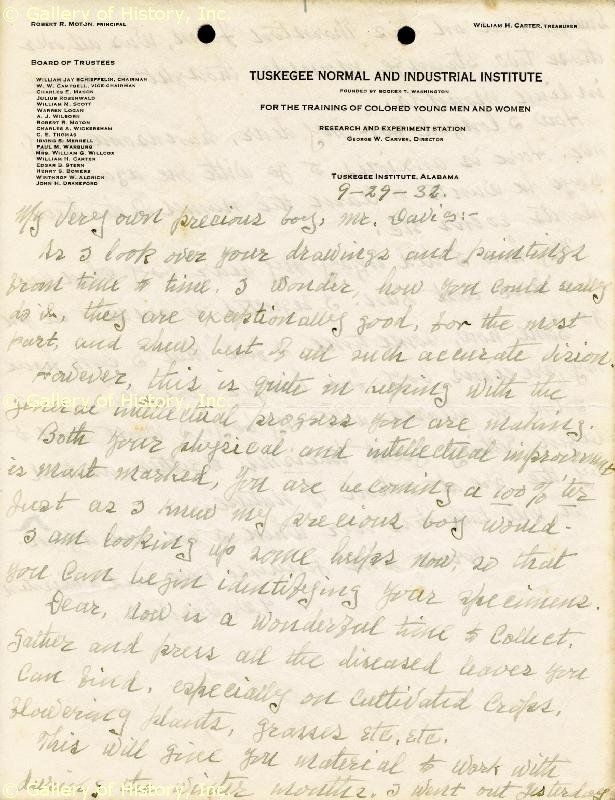 © Gallery of History, Inc.
ROBERT R. MOTON, PRINCIPAL
WILLIAM H. CARTER, TREASURER
BOARD OF TRUSTEES
WILLIAM JAY SCHIEFFELIN, CHAIRMAN
W. W. CAMPBELL, VICE-CHAIRMAN
CHARLES E. MASON
JULIUS ROSENWALD
WILLIAM N. SCOTT
WARREN LOGAN
A. J. WILBORN
ROBERT R. MOTON
CHARLES A. WICKERSHAM
C. E. THOMAS
IRVING S. MERRELL
PAUL M. WARBURG
MRS. WILLIAM G. WILLCOX
WILLIAM H. CARTER
EDGAR B. STERN
HENRY S. BOWERS
WINTHROP W. ALDRICH
JOHN H. DRAKEFORD
TUSKEGEE NORMAL AND INDUSTRIAL INSTITUTE
FOUNDED BY BOOKER T. WASHINGTON
FOR THE TRAINING OF COLORED YOUNG MEN AND WOMEN
RESEARCH AND EXPERIMENT STATION
GEORGE W. CARVER, DIRECTOR
TUSKEGEE INSTITUTE, ALABAMA
9-29-32.
My very own precious boy, Mr. Davis:-
As I look over your drawings and paintings
from time to time, I wonder, how you could really
do it, they are exceptionally good, for the most
part, and show, best of all such accurate vision.
However, this is quite in keeping with the
general intellectual progress you are making.
Both your physical and intellectual improvement
is most marked, you are becoming a 100% 'ter
Just as I knew my precious boy would.
I am looking up some helps now, so that
you can begin identifying your specimens.
Dear, now is a wonderful time to collect,
gather and press all the diseased leaves you
can find, especially on cultivated crops,
flowering plants, grasses etc, etc.
This will give you material to work with
during the winter months. I went out yesterday
© Gallery of History, Inc.
© Gallery of History, Inc.